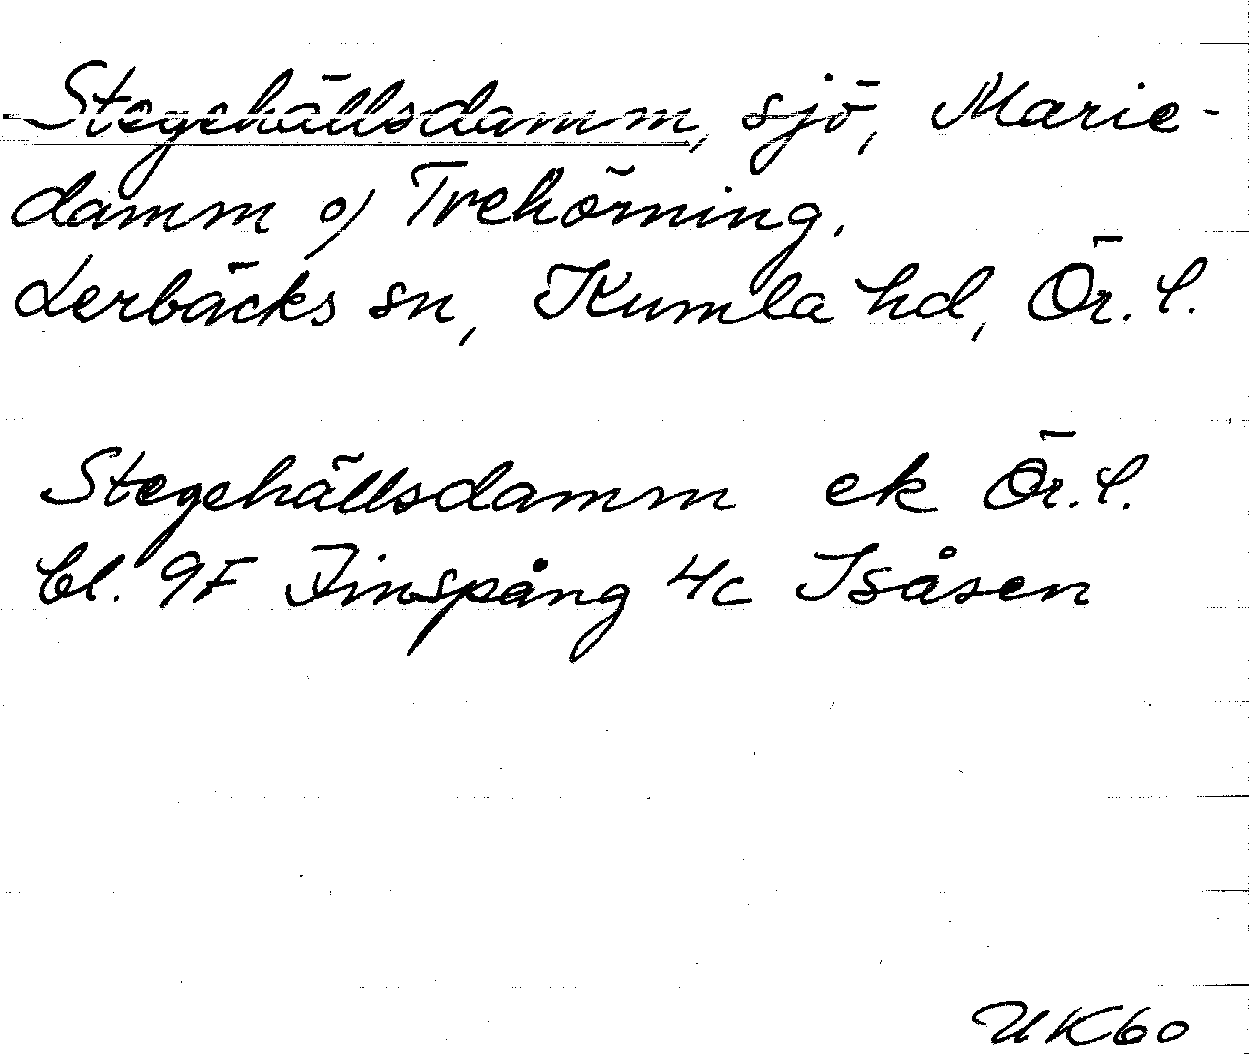 Stegehällsdamm, sjö, Marie-
damm o/ Trehörning,
Lerbäcks sn, Kumla hd, Ör. l.
Stegehällsdamm ek Ör. l.
bl. 9F Finspång 4c Isåsen
UK60